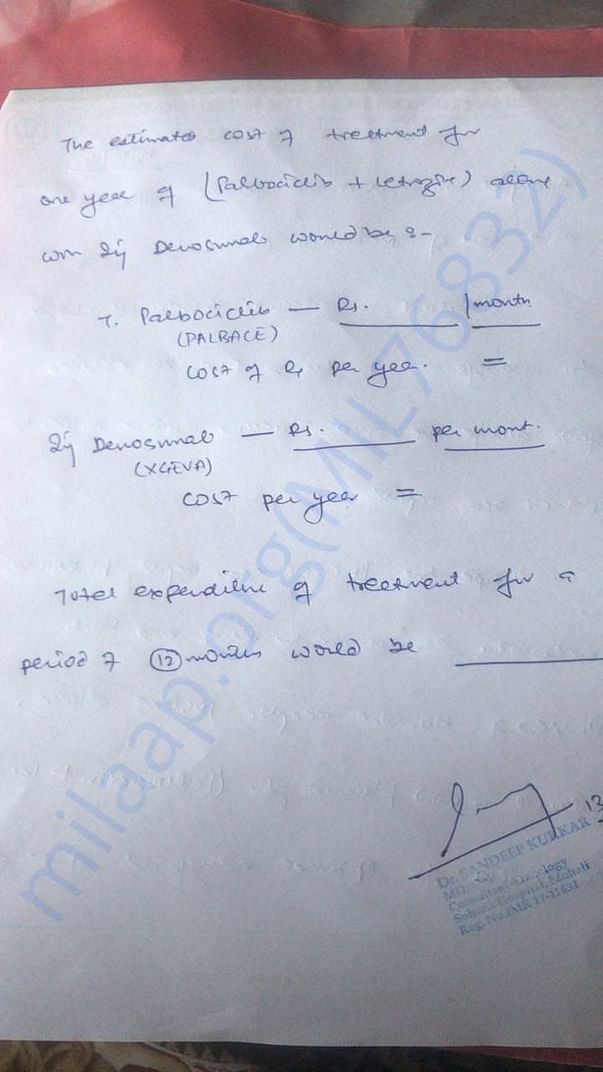 The estimates cost of treatment for
one year of (Palbociclib + Letrozole) along
with Inj Denosumab would be :-
T. Palbociclib — Rs. ______ /month
(PALBACE)
Cost of Rx per year. =
Inj Denosumab — Rs. ______ per mont.
(XGEVA)
Cost per year =
Total expenditure of treatment for a
period of 12 months would be ______
13
Dr. SANDEEP KUKKAR
MD,
Consultant Oncology
Sohana Hospital, Mohali
Reg. No.IMR 17-11631
milaap.org(MIL76832)